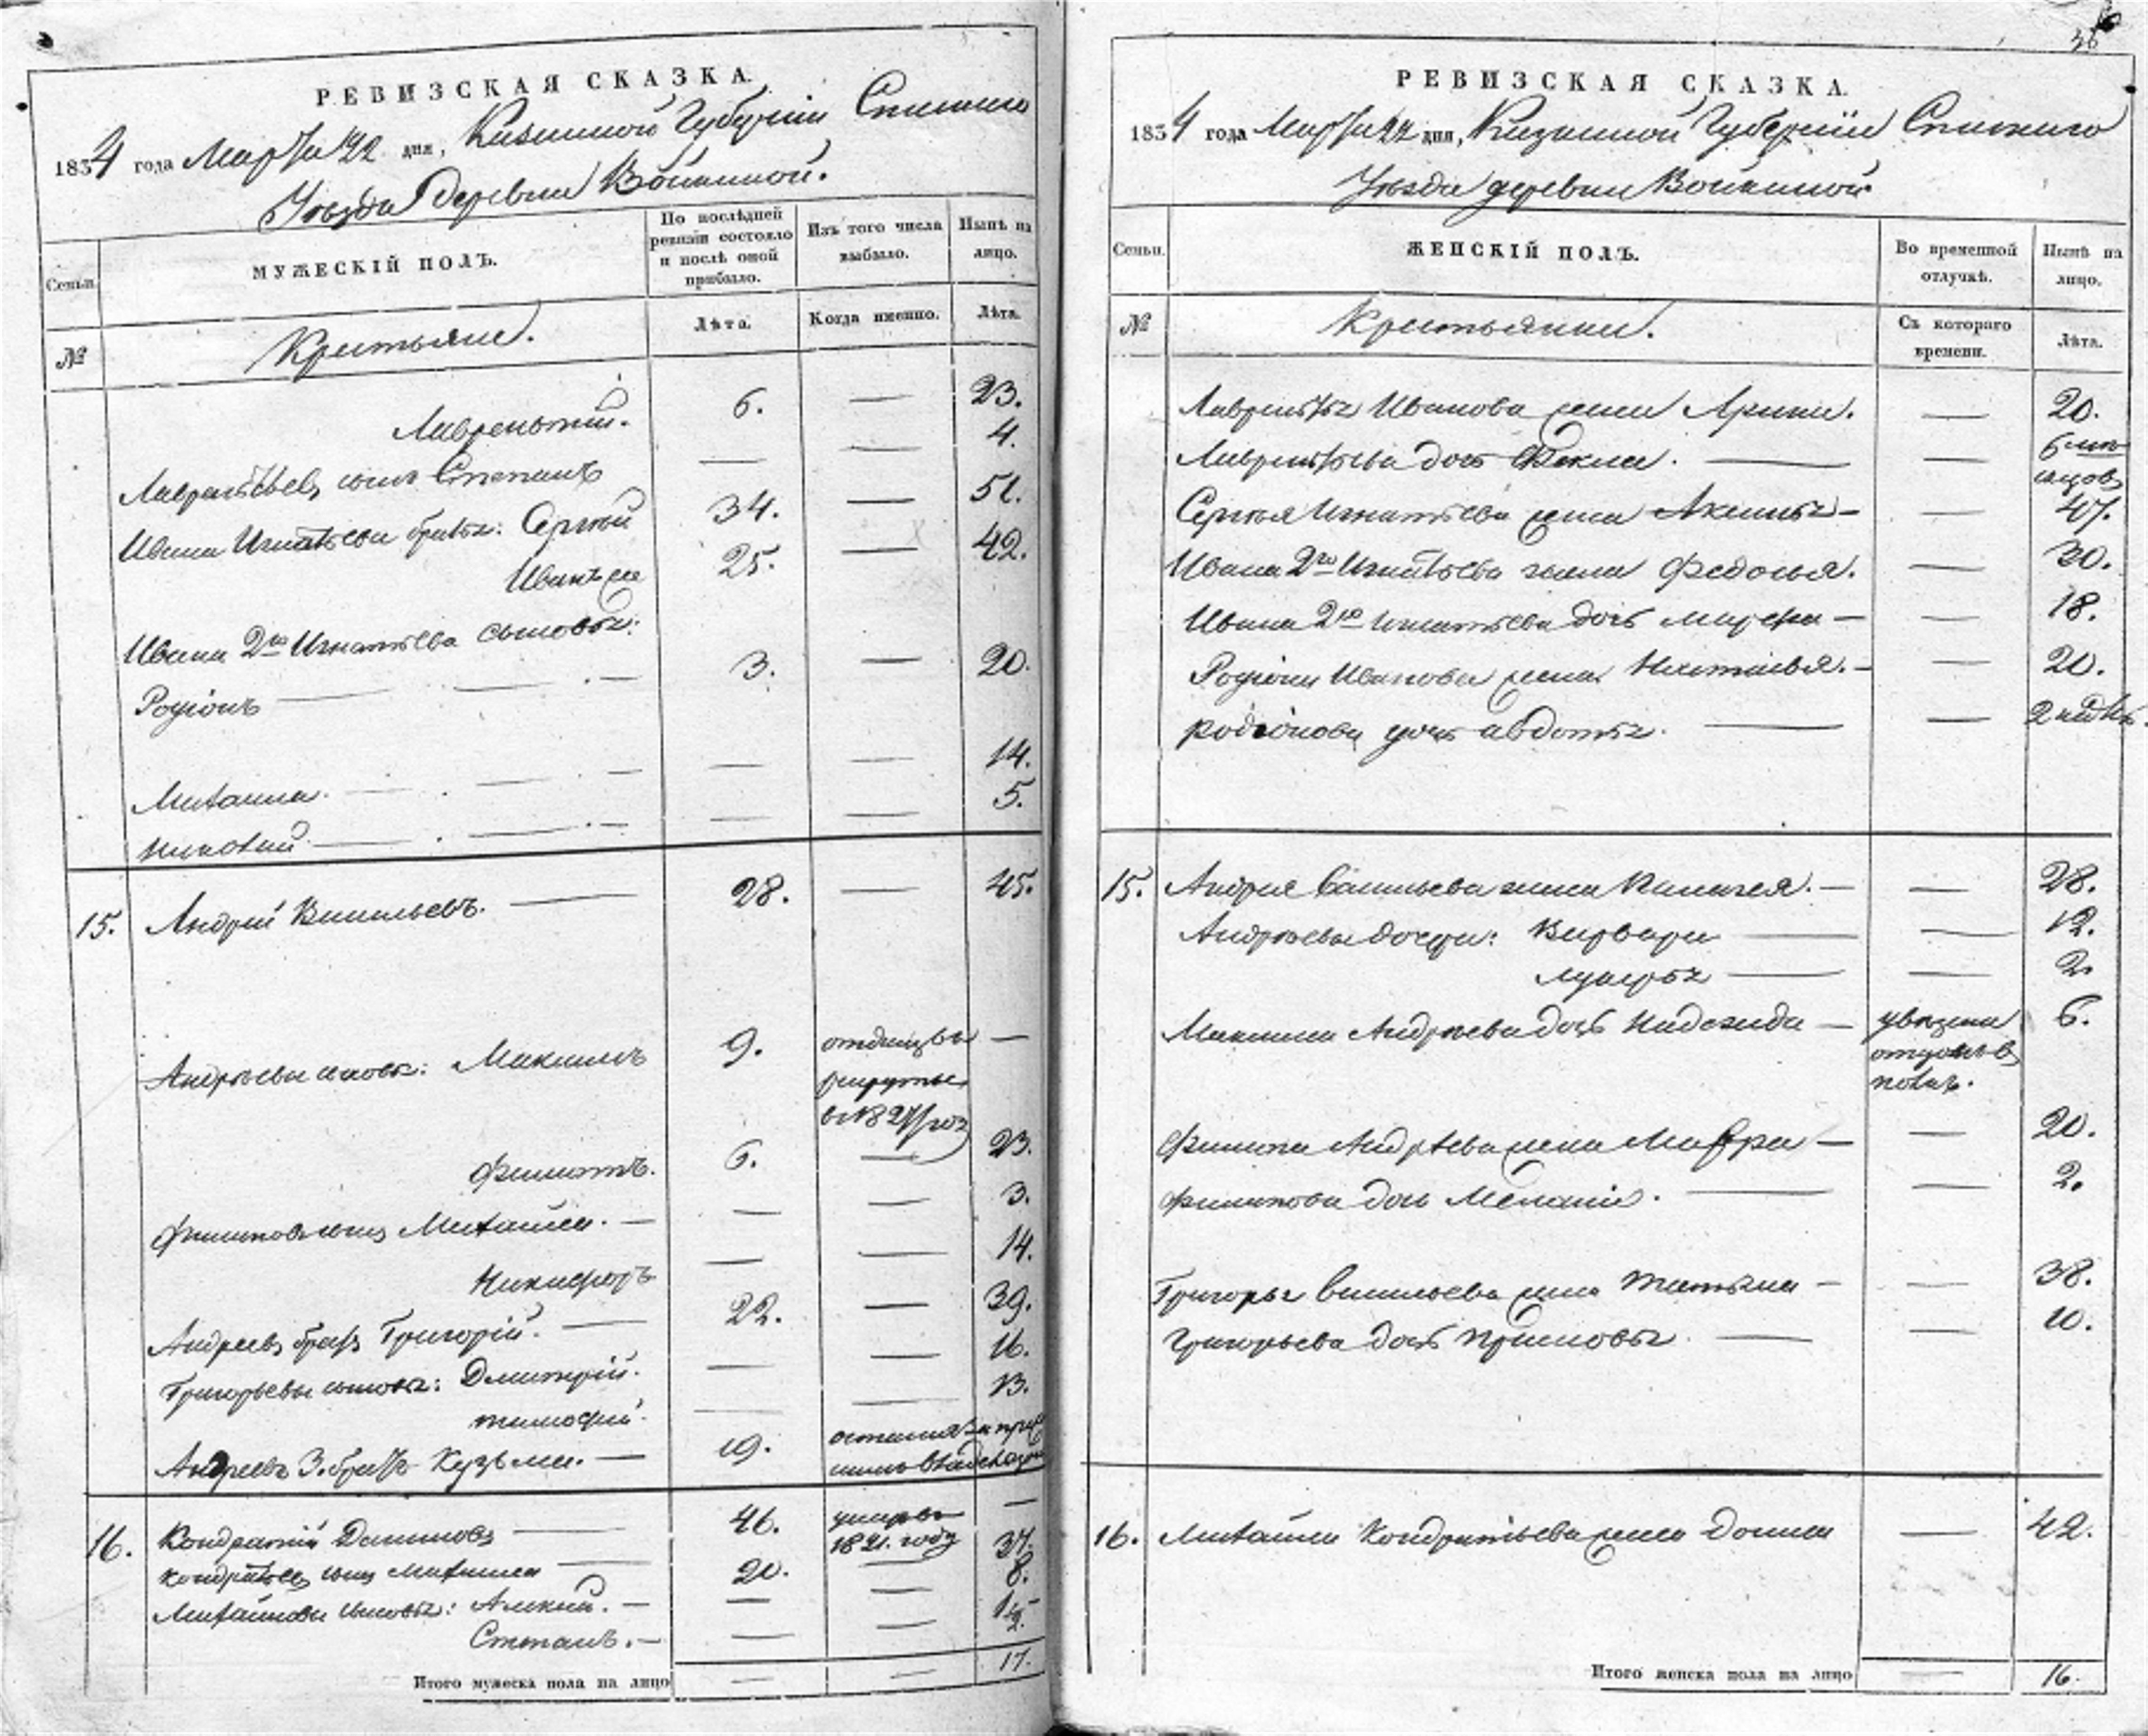 РЕВИЗСКАЯ СКАЗКА.
1834 года Марта 22 дня, Казанской Губернии Спасскаго
Уѣзда Деревни Войкиной.
Семьи.
МУЖЕСКІЙ ПОЛЪ.
По послѣдней ревизіи состояло и послѣ оной прибыло.
Изъ того числа выбыло.
Нынѣ на лицо.
№
Крестьяне.
Лѣта.
Когда именно.
Лѣта.
Лаврентий. 6. — 23.
Лаврентьевъ сынъ Степанъ — — 4.
Ивана Игнатьева братья: Сергѣй 34. — 51.
Иванъ 25. — 42.
Ивана 2го Игнатьева сыновья:
Родіонъ — 3. — 20.
Михаила — — — 14.
Николай — — — 5.
15. Андрей Васильевъ. — 28. — 45.
Андрѣевы сыновья: Максимъ 9. отданъ въ рекруты в 1827 год —
Филипъ. 6. — 23.
Филиповъ сынъ Михайла. — — — 3.
Никифоръ — — 14.
Андреевъ братъ Григорій. — 22. — 39.
Григорьевы сыновья: Дмитрій. — — 16.
тимофей. — — 13.
Андреевъ 3. братъ Кузьма. — 19.
16. Кондратій Даниловъ — 46. умеръ въ 1821. году —
Кондратьевъ сынъ Михаила — 20. — 37.
Михайловы сыновья: Алексѣй. — — — 8.
Степанъ. — — — 1 1/2.
Итого мужеска пола на лицо — — 17.
36
РЕВИЗСКАЯ СКАЗКА.
1834 года Марта 22 дня, Казанской Губерніи Спаскаго
Уѣзда деревни Войкиной
Семьи.
ЖЕНСКІЙ ПОЛЪ.
Во временной отлучкѣ.
Нынѣ на лицо.
№
Крестьянки.
Съ котораго времени.
Лѣта.
Лаврентья Иванова жена Арина. — 20.
Лаврентьева дочь Фекла. — — 6 мѣсяцовъ
Сергѣя Игнатьева жена Аксинья — — 47.
Ивана 2го Игнатьева жена Федосья. — 30.
Ивана 2го Игнатьева дочь марфа — — 18.
Родіона Иванова жена Наталья. — — 20.
родіонова дочь авдотья. — — 2 недѣ.
15. Андрея Васильева жена Палагея. — — 28.
Андрѣевы дочери: Варвара — — 12.
лукерья — — 2.
Максима Андрѣева дочь Надежда — увезена отцомъ въ полкъ. 6.
Филипа Андрѣева жена Мавра — — 20.
Филипова дочь Меланія. — — 2.
Григорья Васильева жена татьяна — — 38.
Григорьева дочь прасковья — — 10.
16. Михайла Кондратьева жена Домна — 42.
Итого женска пола на лицо — 16.